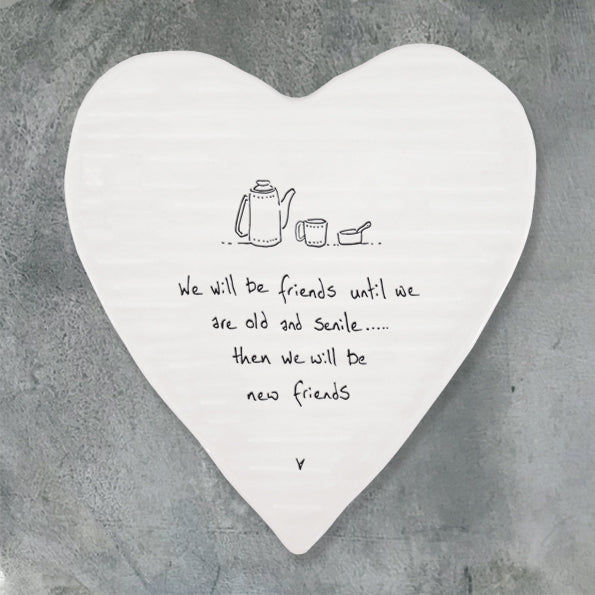 We will be friends until we
are old and senile.....
then we will be
new friends